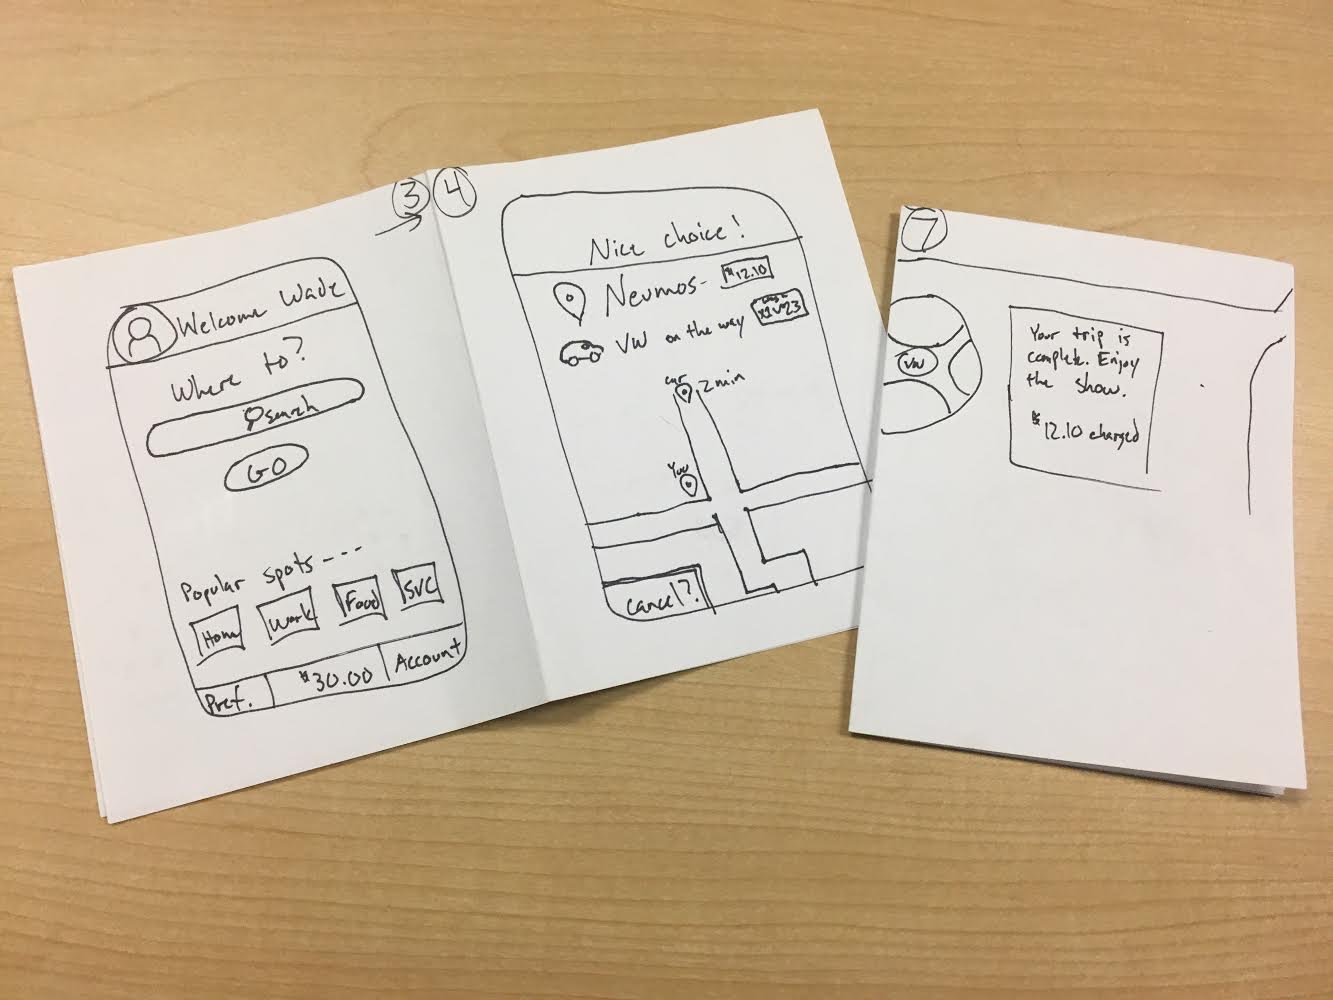 3
Welcome Wade
Where to?
search
GO
Popular spots---
Home Work Food SVC
Pref. $30.00 Account
4
Nice choice!
Neumos- $12.10
VW on the way
car 2 min
You
cancel?
7
VW
Your trip is
complete. Enjoy
the show.
$12.10 charged